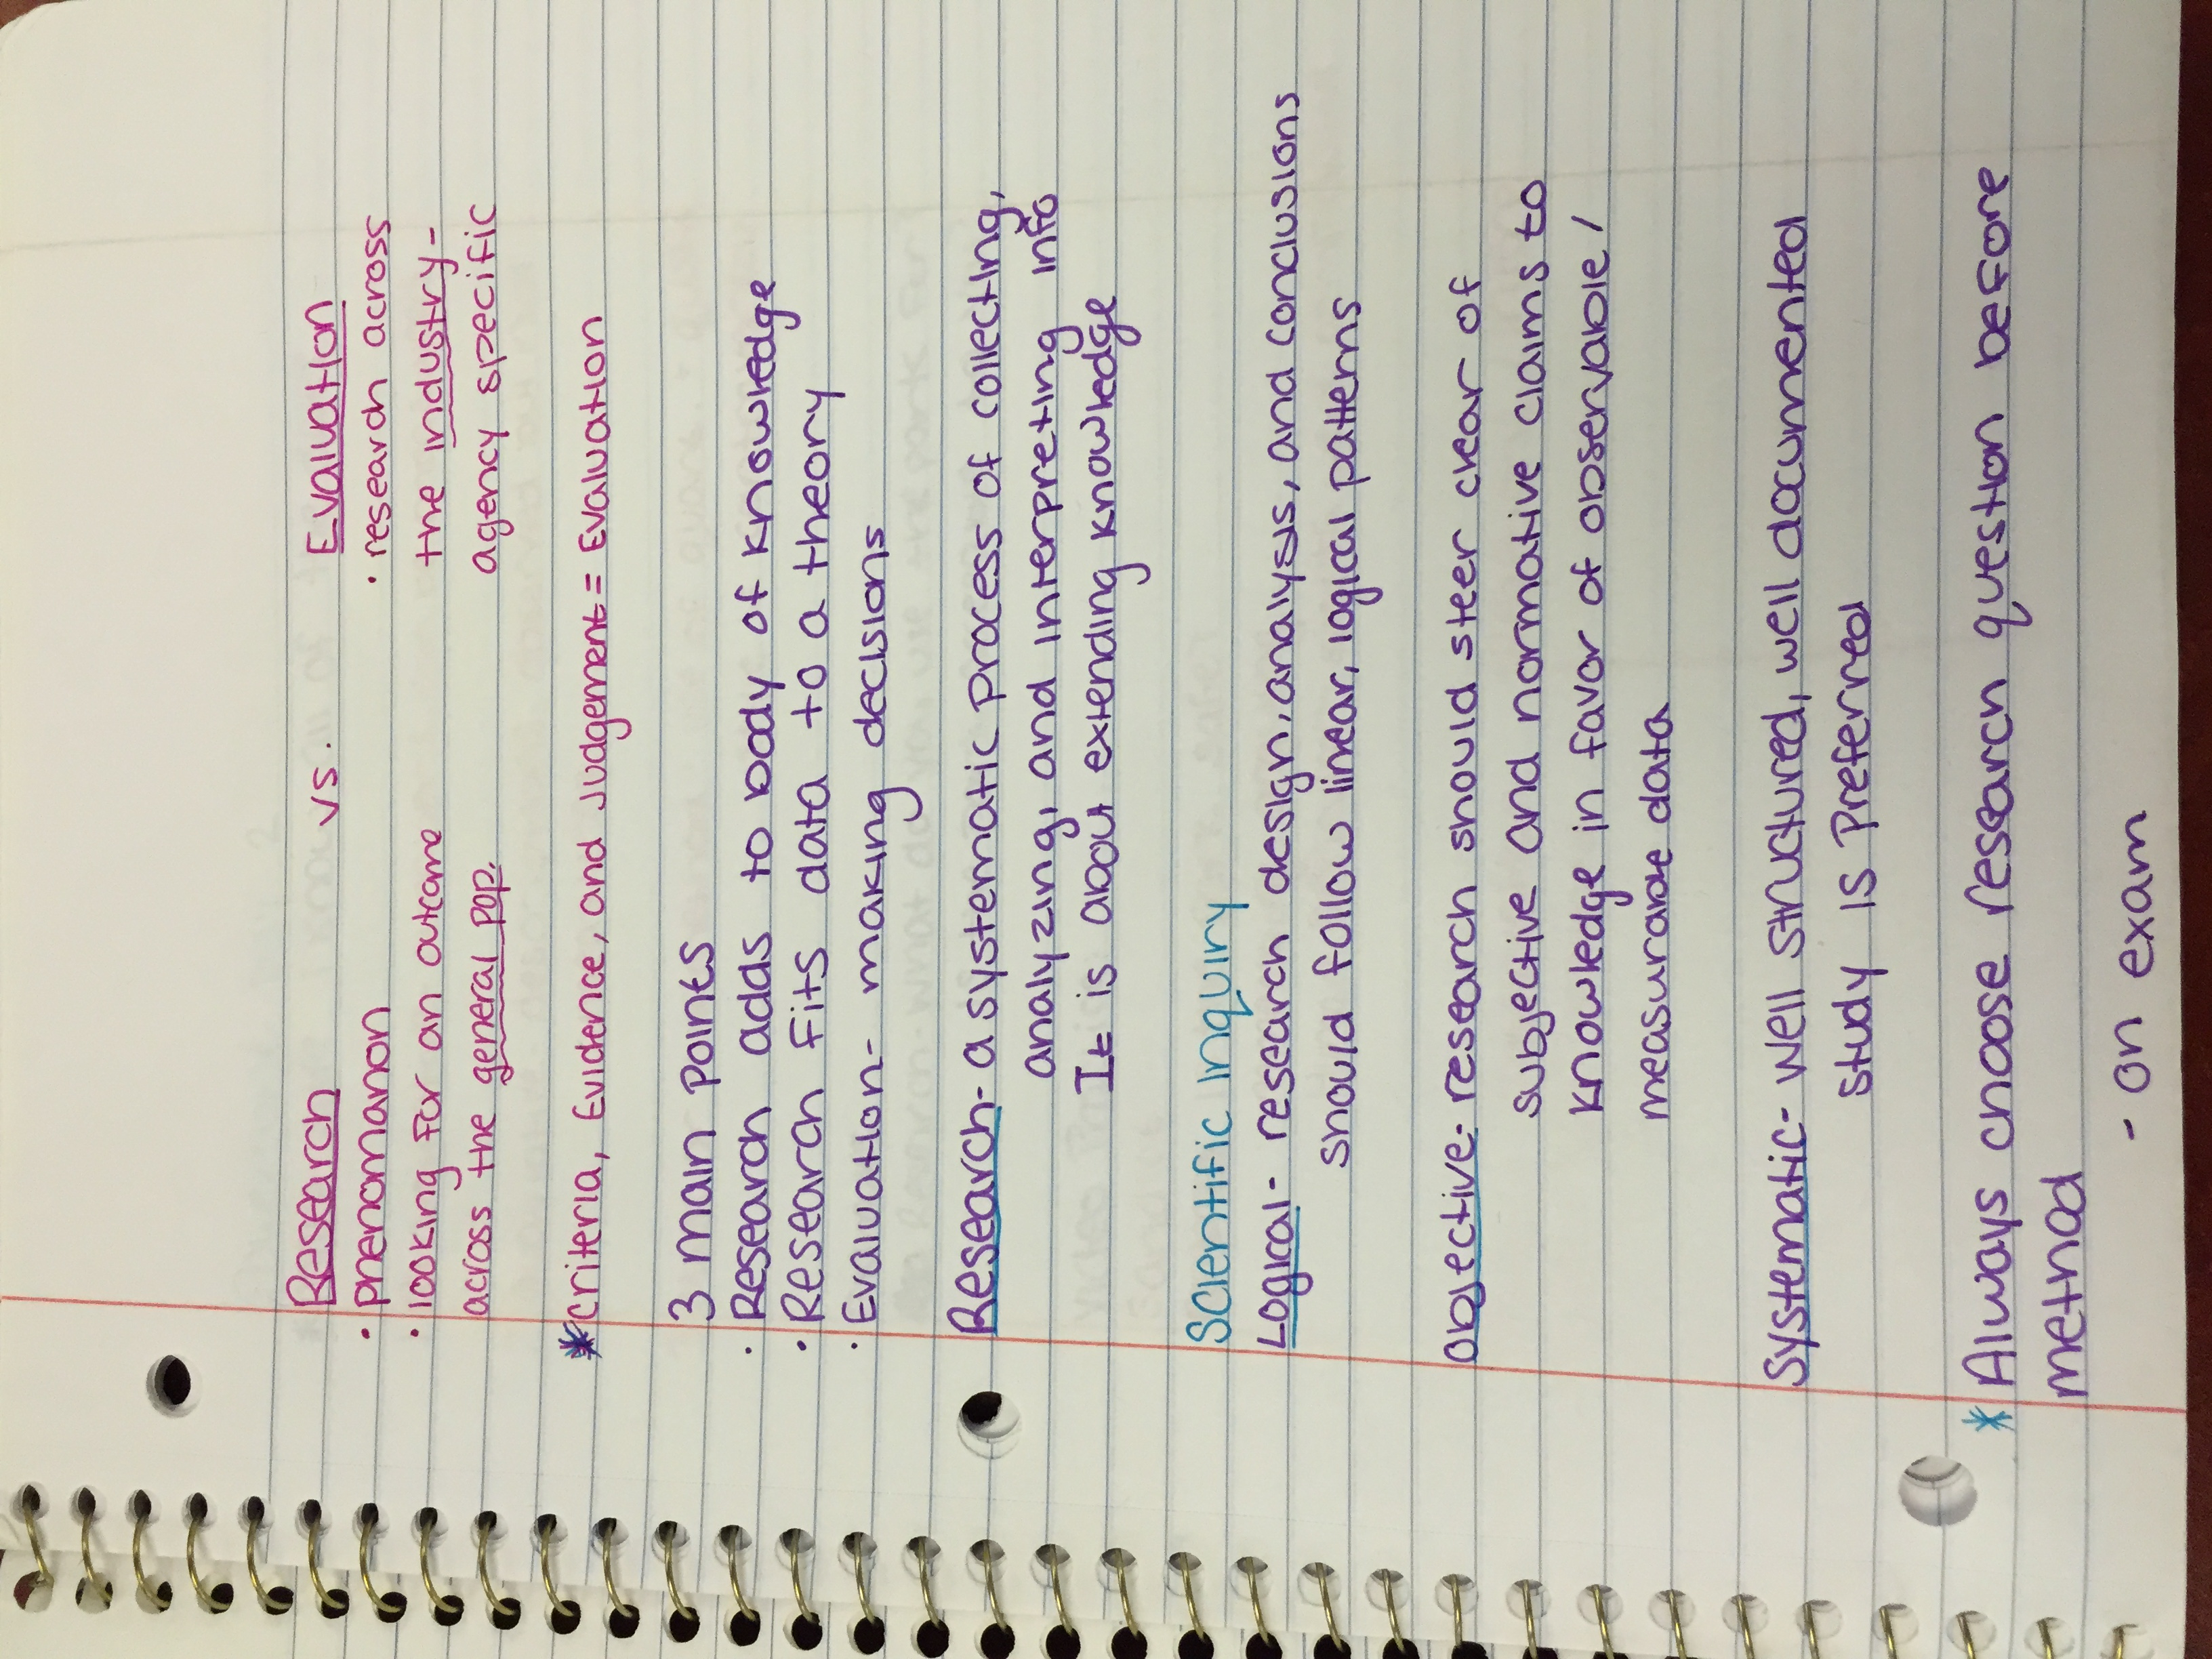 Research vs. Evaluation
· phenomanon · research across
· looking for an outcome the industry-
across the general pop. agency specific
*criteria, Evidence, and Judgement = Evaluation
3 main points
· Research adds to body of knowledge
· Research fits data to a theory
· Evaluation- making decisions
Research- a systematic process of collecting,
analyzing, and interpreting info
It is about extending knowledge
Scientific Inquiry
Logical- research design, analysis, and conclusions
should follow linear, logical patterns
Objective- research should steer clear of
subjective and normative claims to
knowledge in favor of observable/
measurable data
Systematic- well structured, well documented
study is preferred
* Always choose research question before
method
- on exam